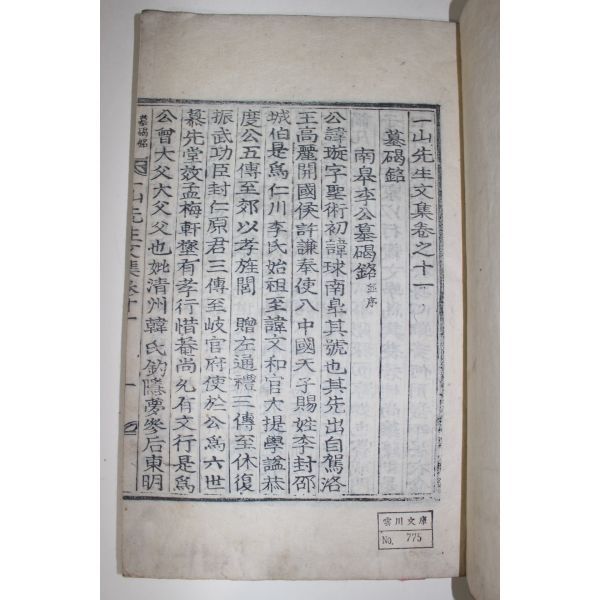 一山先生文集卷之十一
墓碣銘
南皐李公墓碣銘 並序
公諱璇字聖術初諱球南皐其號也其先出自駕洛
王高麗開國侯許謙奉使入中國天子賜姓李封邵
城伯是爲仁川李氏始祖至諱文和官大提學諡恭
度公五傳至郊以孝旌閭 贈左通禮三傳至休復
振武功臣封仁原君三傳至岐官府使於公爲六世
慕先堂效孟梅軒㙜有孝行惜菴尚允有文行是爲
公曾大父大父父也妣清州韓氏釣隱夢參后東明
墓碣銘
一山先生文集卷十一
一
雲川文庫
No. 775